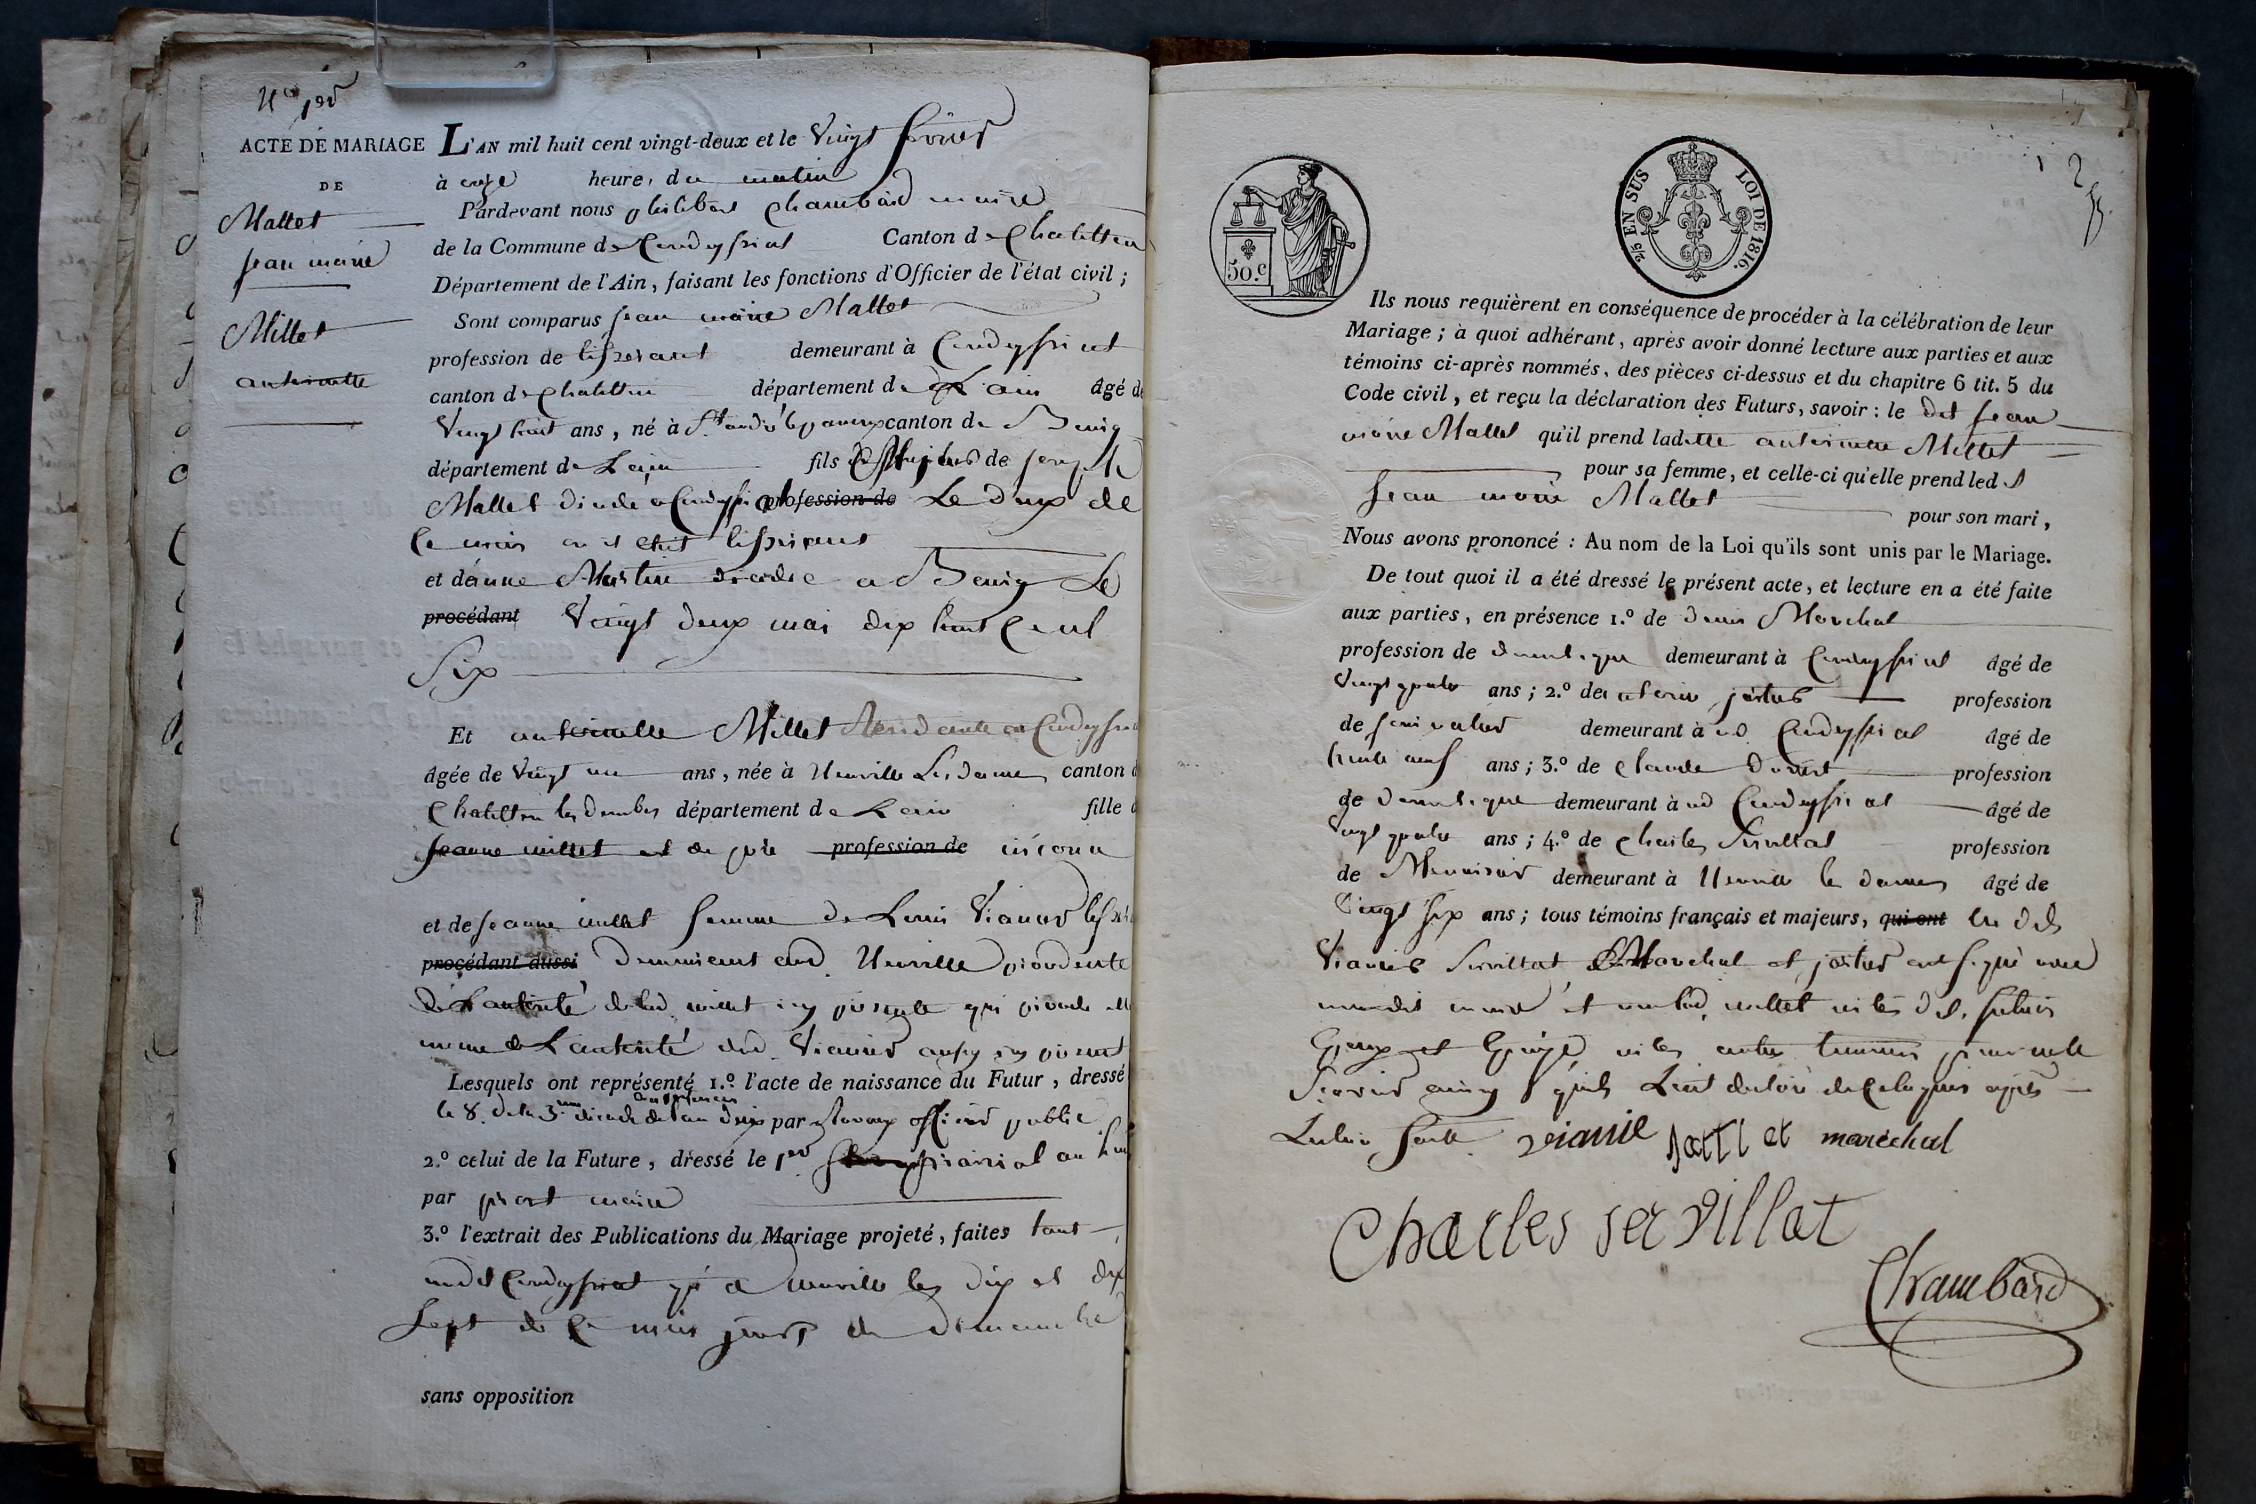 N.º 1er
ACTE DE MARIAGE
DE
Mallet
Jean marie
Millet
antoinette
L'AN mil huit cent vingt-deux et le Vingt fevrier
à onze heure, du matin
Pardevant nous philibert Chambard maire
de la Commune de Condeyssiat Canton de Chatillon
Département de l'Ain, faisant les fonctions d'Officier de l'état civil;
Sont comparus Jean marie Mallet
profession de tisserant demeurant à Condeyssiat
canton de Chatillon département de Lain âgé de
Vingt huit ans, né à St andré le panoux canton de Bourg
département de Lain fils de Joseph
Mallet décédé a Condeyssiat profession de Le deux de
Ce mois ou il etoit tisserant
et de anne Martin décédée a Bourg Le
procédant Vingt deux mai dix huit Cent
Six
Et antoinette Millet Residante a Condeyssiat
âgée de Vingt un ans, née à Neuville Les dames canton de
Chatillon les dombes département de Lain fille de
Jeanne millet et de pere profession de inconu
et de Jeanne millet femme de Louis Vianier
procédant aussi demeurent aud. Neuville procedente
de Lautorité de lad. millet icy presente qui procede elle
meme de Lautorité dud. Vianier aussy icy present
Lesquels ont représenté 1.º l'acte de naissance du Futur, dressé
le 8. de la 3.me decade de lan deux par officier public
2.º celui de la Future, dressé le 1er an
par maire
3.º l'extrait des Publications du Mariage projeté, faites tant
audit Condeyssiat qu'a neuville les dix et dix
Sept de Ce mois jours de dimanche
sans opposition
2
50.c
2/5 EN SUS LOI DE 1816.
Ils nous requièrent en conséquence de procéder à la célébration de leur
Mariage; à quoi adhérant, après avoir donné lecture aux parties et aux
témoins ci-après nommés, des pièces ci-dessus et du chapitre 6 tit. 5 du
Code civil, et reçu la déclaration des Futurs, savoir: le dit Jean
marie Mallet qu'il prend ladite antoinette Millet
pour sa femme, et celle-ci qu'elle prend led.t
Jean marie Mallet
pour son mari,
Nous avons prononcé: Au nom de la Loi qu'ils sont unis par le Mariage.
De tout quoi il a été dressé le présent acte, et lecture en a été faite
aux parties, en présence 1.º de denis Marechal
profession de domestique demeurant à Condeyssiat âgé de
Vingt quatre ans; 2.º de profession
de demeurant à ud Condeyssiat âgé de
trente neuf ans; 3.º de Claude profession
de domestique demeurant à ud Condeyssiat âgé de
Vingt quatre ans; 4.º de Charles Servillat profession
de Menuisier demeurant à Neuville les dames âgé de
Vingt Six ans; tous témoins français et majeurs, qui ont Les dits
Vianier Servillat Marechal et ont signé avec
nous dit maire et non lad. millet ni les d.s futurs
Epoux et Epouse ni les autres temoins pour ne le
Scavoir ainsy qu'ils Lont declaré de Ce requis après
Lecture faite. vianie et marechal
Charles servillat
Chambard